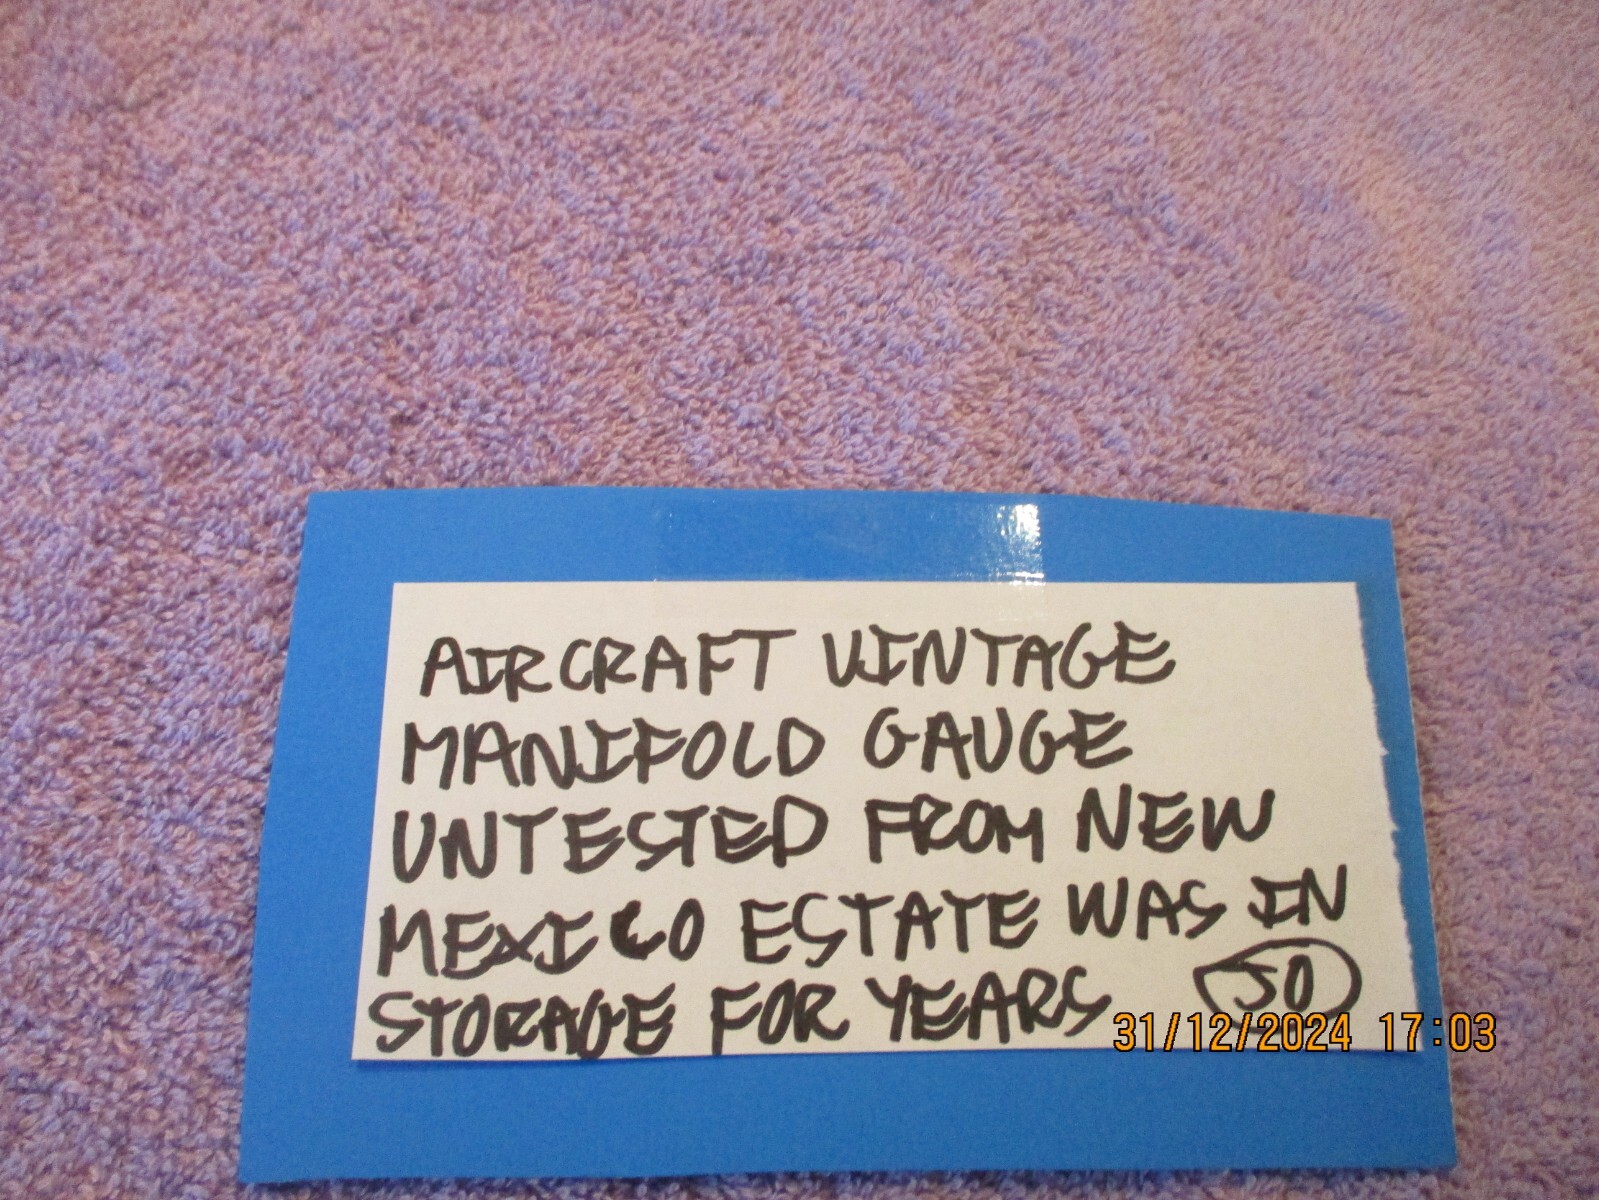 AIRCRAFT VINTAGE
MANIFOLD GAUGE
UNTESTED FROM NEW
MEXICO ESTATE WAS IN
STORAGE FOR YEARS JO
31/12/2024 17:03